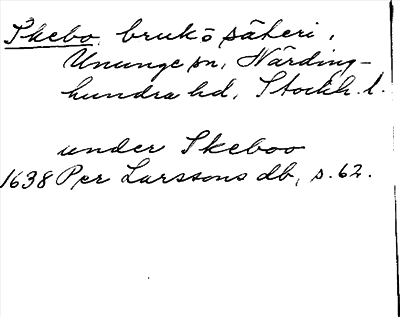 Skebo, bruk o säteri,
Ununge sn, Närding-
hundra hd, Stockh. l.
under Skeboo
1638 Per Larssons db, s. 62.